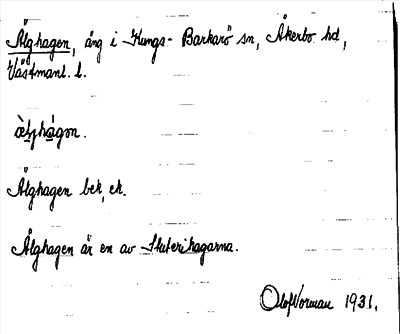 Älghagen, äng i Kungs-Barkarö sn, Åkerbo hd,
Västmanl. l.
Älghagen bek, ek.
Älghagen är en av Skuterihagarna.
Olof Norman 1931.